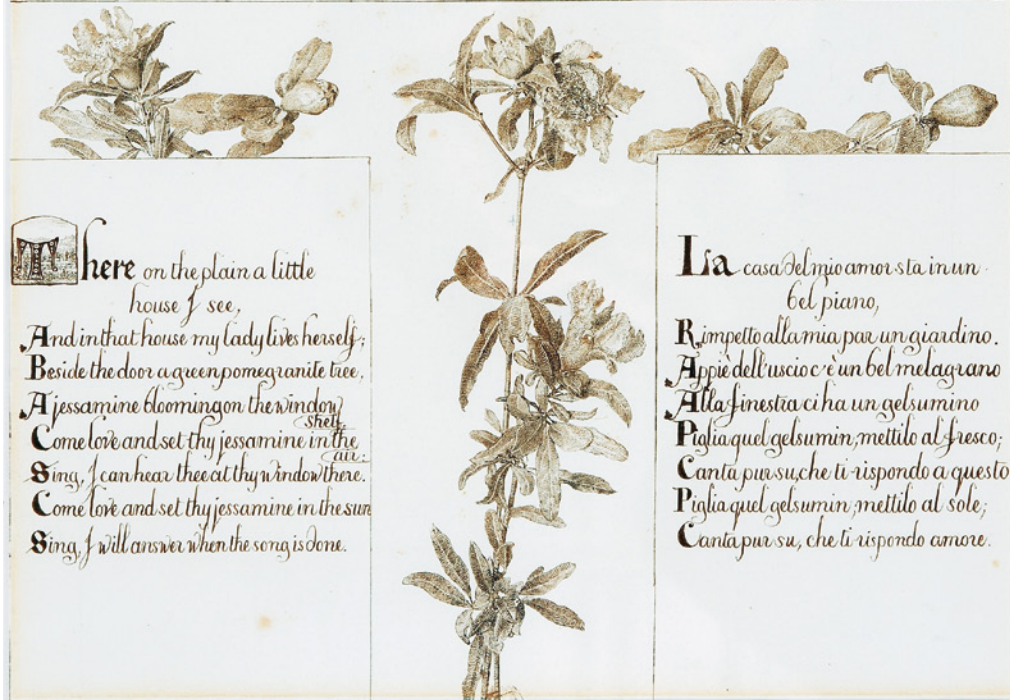 There on the plain a little
house I see,
And in that house my lady lives herself;
Beside the door a green pomegranite tree,
A jessamine blooming on the window
shelf.
Come love and set thy jessamine in the
air:
Sing, I can hear thee at thy window there.
Come love and set thy jessamine in the sun
Sing, I will answer when the song is done.
La casa del mio amor sta in un
bel piano,
Rimpetto alla mia par un giardino.
Appiè dell'uscio c'è un bel melagrano
Alla finestra ci ha un gelsumino
Piglia quel gelsumin, mettilo al fresco;
Canta pur su, che ti rispondo a questo
Piglia quel gelsumin, mettilo al sole;
Canta pur su, che ti rispondo amore.